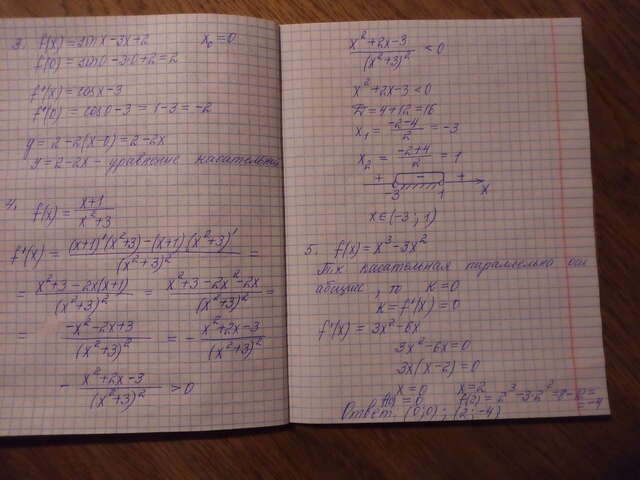 3. f(x) = sin x - 3x + 2   x₀ = 0
f(0) = sin 0 - 3·0 + 2 = 2
f'(x) = cos x - 3
f'(0) = cos 0 - 3 = 1 - 3 = -2
y = 2 - 2(x - 0) = 2 - 2x
y = 2 - 2x - уравнение касательной
4. f(x) = (x+1)/(x²+3)
f'(x) = ((x+1)'(x²+3) - (x+1)(x²+3)')/(x²+3)² =
= (x²+3-2x(x+1))/(x²+3)² = (x²+3-2x²-2x)/(x²+3)² =
= (-x²-2x+3)/(x²+3)² = - (x²+2x-3)/(x²+3)²
- (x²+2x-3)/(x²+3)² > 0
(x²+2x-3)/(x²+3)² < 0
x²+2x-3 < 0
D = 4+12 = 16
x₁ = (-2-4)/2 = -3
x₂ = (-2+4)/2 = 1
+ - +
-3 1 x
x ∈ (-3; 1)
5. f(x) = x³ - 3x²
Т.к касательная параллельна оси
абсцисс, то k = 0
k = f'(x) = 0
f'(x) = 3x² - 6x
3x² - 6x = 0
3x(x-2) = 0
x = 0   x = 2
f(0) = 0   f(2) = 2³ - 3·2² = 8 - 12 =
= -4
Ответ: (0;0); (2;-4)